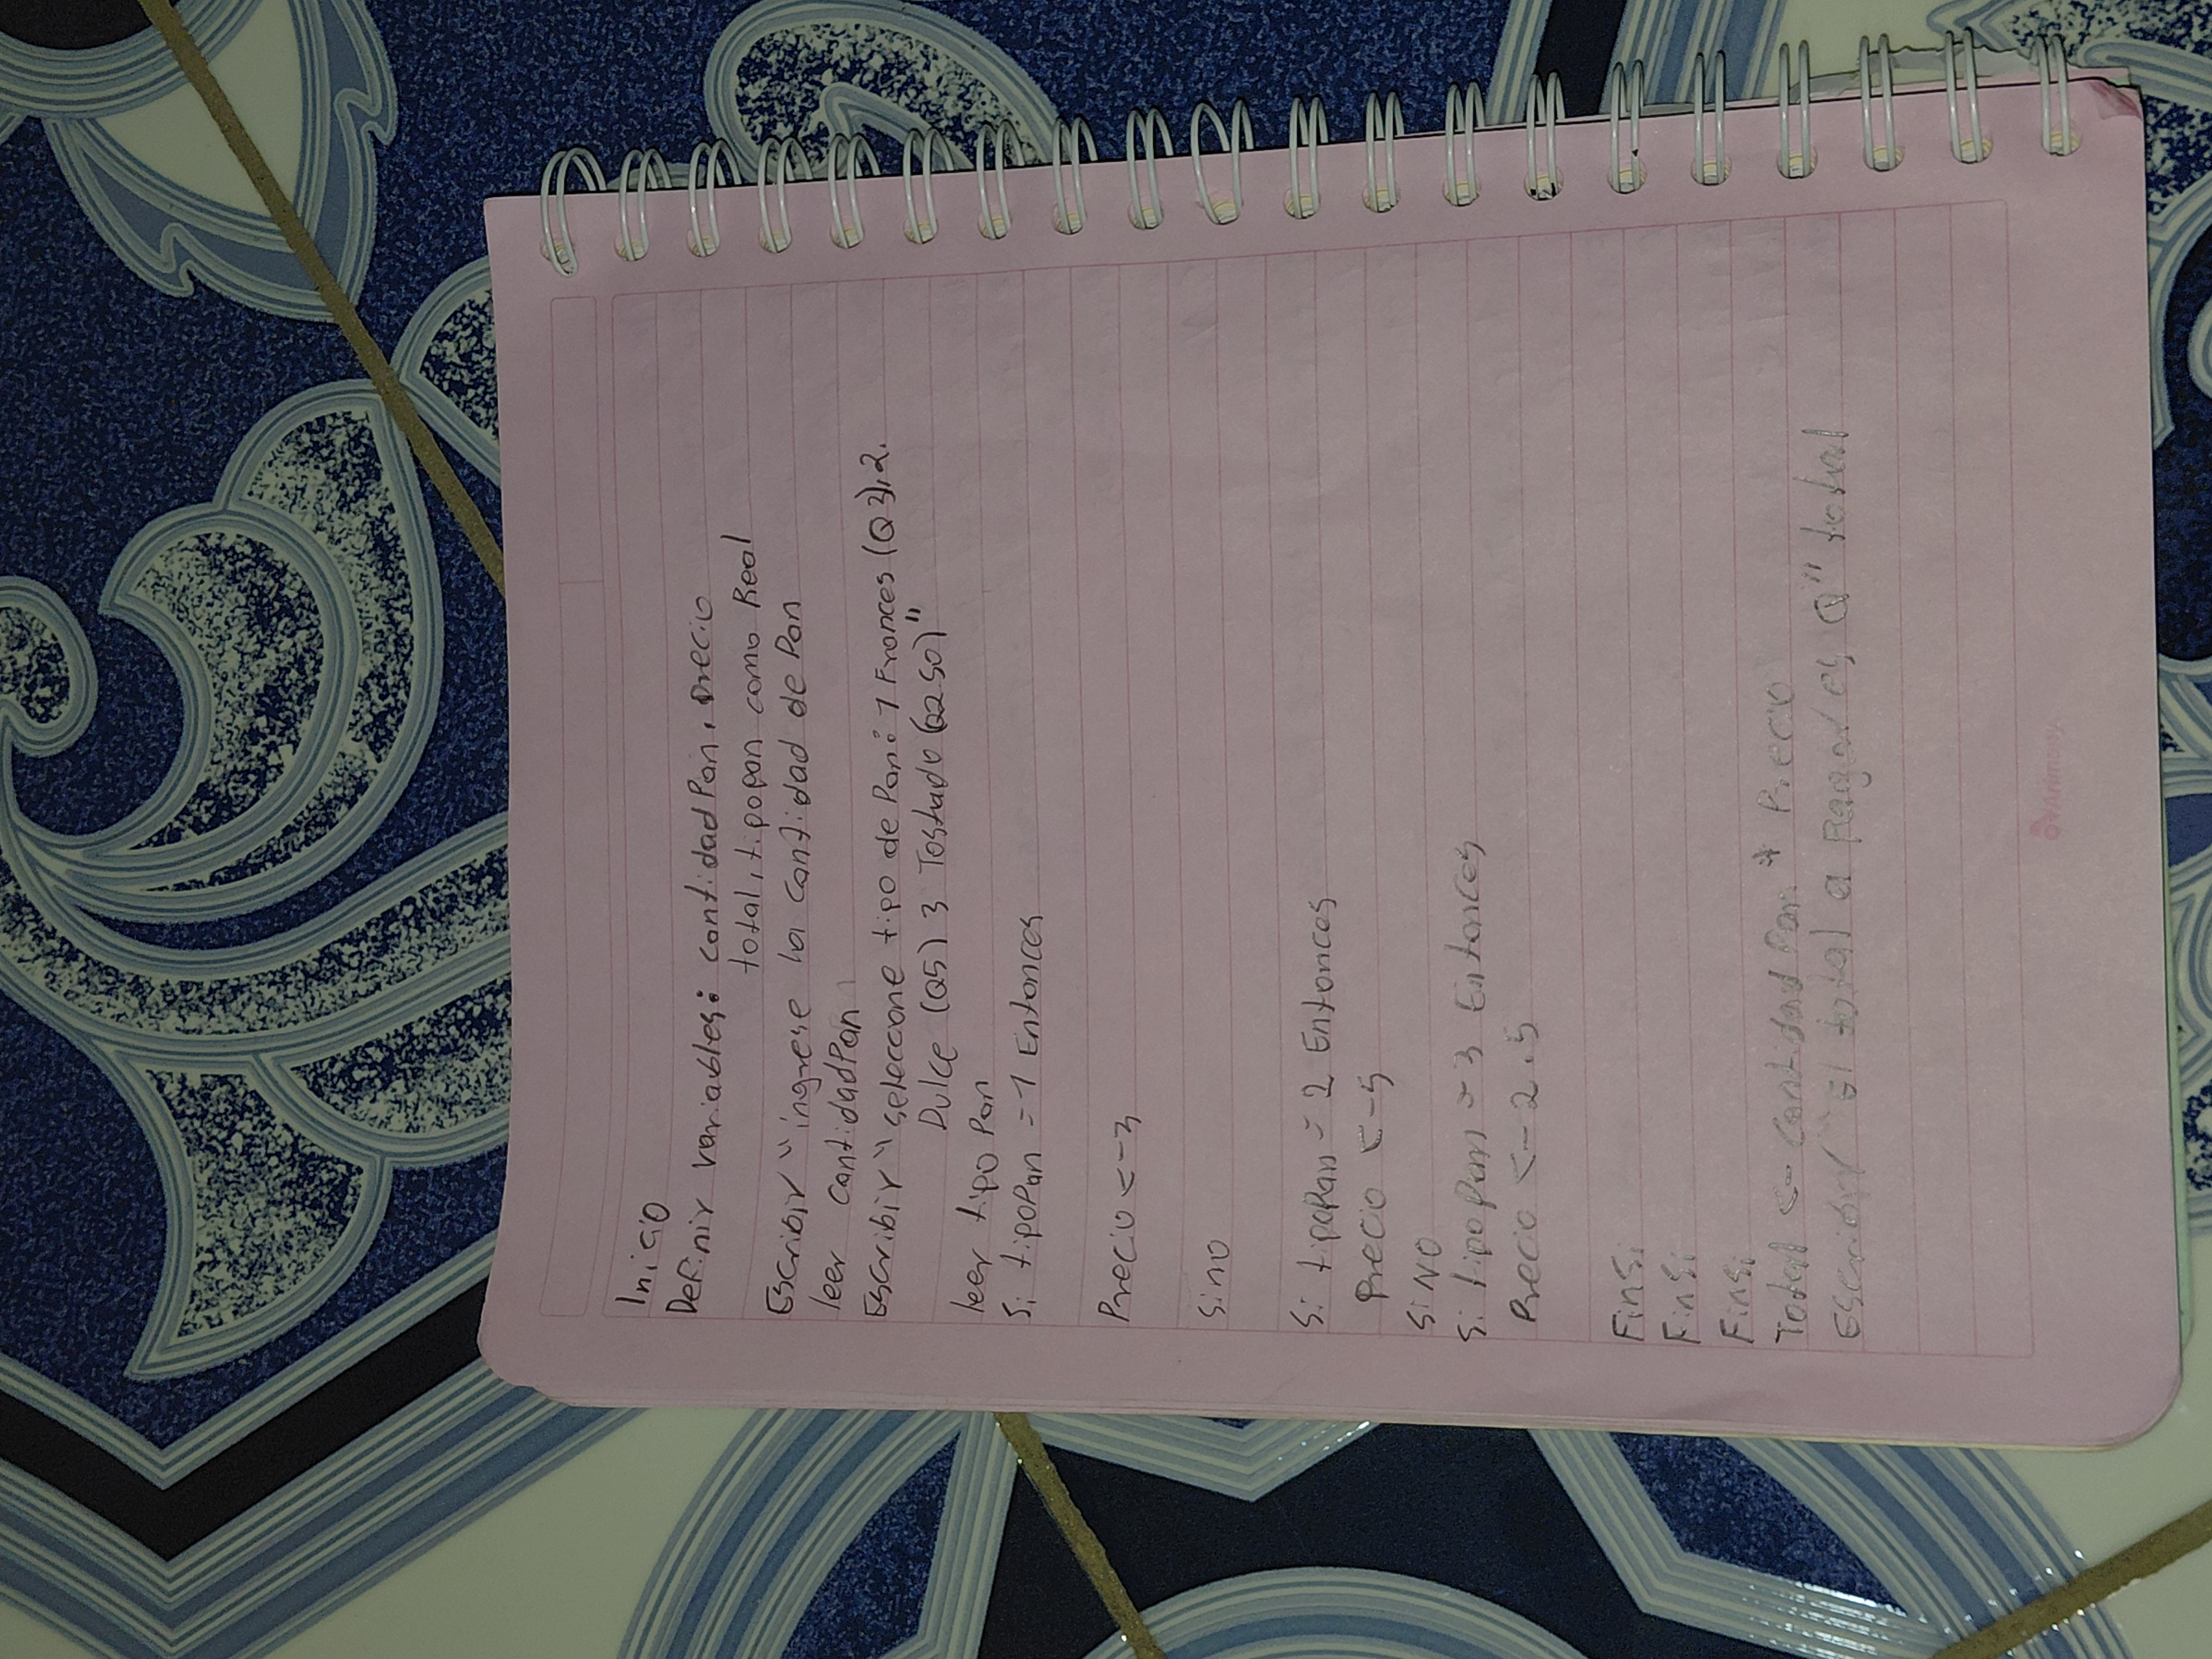 Inicio
Definir variables: cantidadPan, Precio
total, tipopan como Real
Escribir "ingrese la cantidad de Pan
leer cantidadPan
Escribir "seleccione tipo de Pan: 1 Frances (Q3), 2.
Dulce (Q5) 3 Tostado (Q2.50)"
leer tipo Pan
Si tipoPan = 1 Entonces
Precio <- 3
Sino
Si tipoPan = 2 Entonces
Precio <- 5
SiNO
Si tipo Pan = 3 Entonces
Precio <- 2.5
Finsi
Finsi
Finsi
Total <- cantidad Pan * Precio
Escribir "El total a pagar es Q" total
Animosy